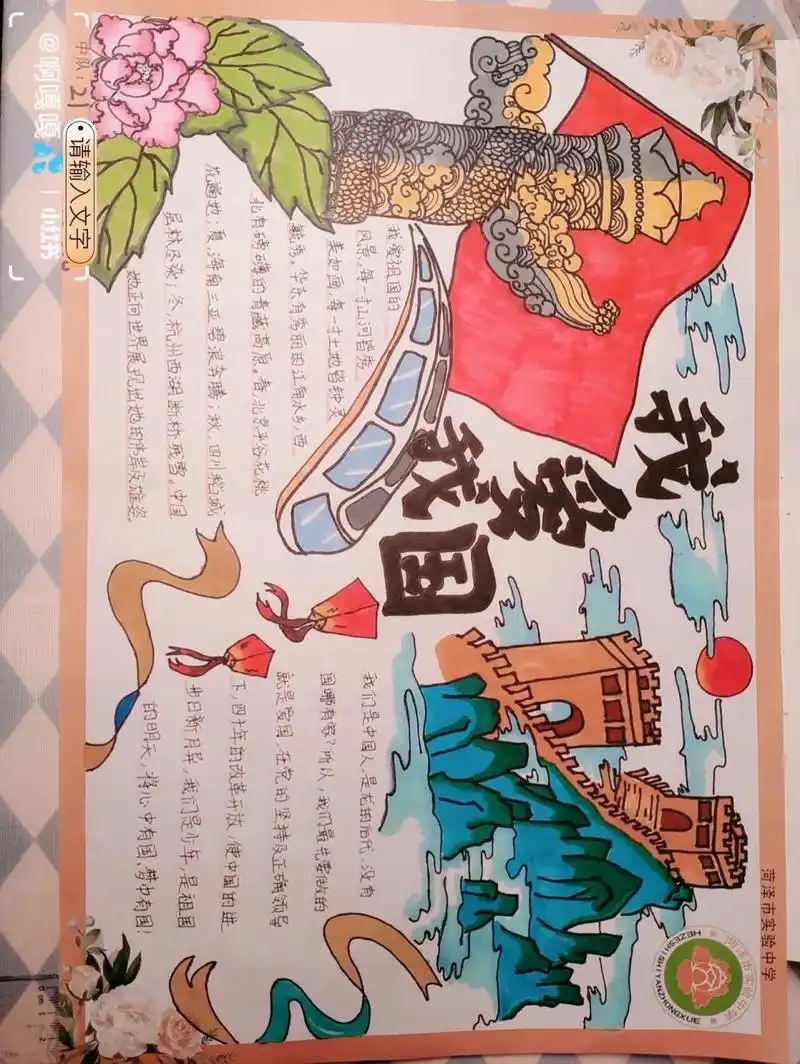 菏泽市实验中学
菏泽市实验中学
HEZESHISHIYANZHONGXUE
我爱
我国
我爱祖国的
风景,每一寸山河皆秀
美如画,每一寸土地皆钟灵
毓秀。华东有秀丽的江南水乡,西
北有磅礴的青藏高原。春,北京平谷花桃
遍地;夏,海南三亚碧浪奔腾;秋,四川稻城
层林尽染;冬,杭州西湖断桥残雪。中国
她正向世界展现出她的伟岸及雄姿
我们是中国人,是龙的后代,没有
国哪有家?所以,我们最先要做的
就是爱国,在党的坚持及正确领导
下,四十年的改革开放,使中国的进
步日新月异,我们是少年,是祖国
的明天,将心中有国,梦中有国!
中队:21
·请输入文字
@啊嘎嘎
小红书